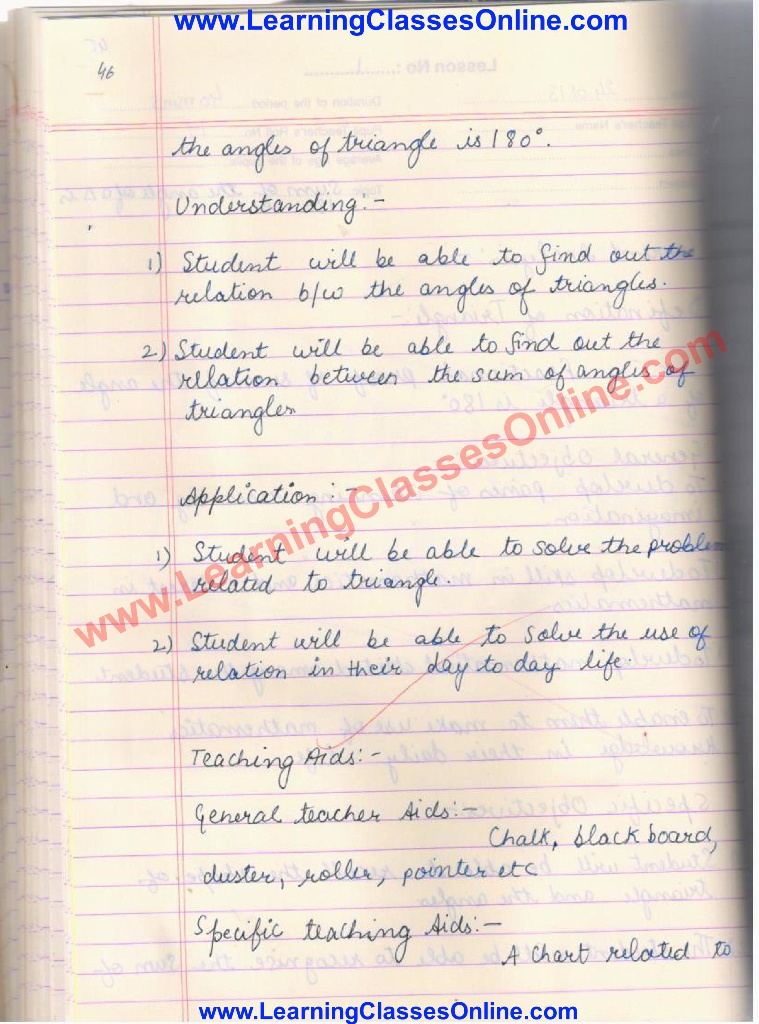 www.LearningClassesOnline.com
46
the angles of triangle is 180°.
Understanding:-
1) Student will be able to find out the
relation b/w the angles of triangles.
2) Student will be able to find out the
relation between the sum of angles of
triangles
www.LearningClassesOnline.com
Application:-
1) Student will be able to solve the problem
related to triangle.
2) Student will be able to solve the use of
relation in their day to day life.
Teaching Aids:-
General teacher Aids:-
Chalk, black board,
duster, roller, pointer etc
Specific teaching Aids:-
A Chart related to
www.LearningClassesOnline.com